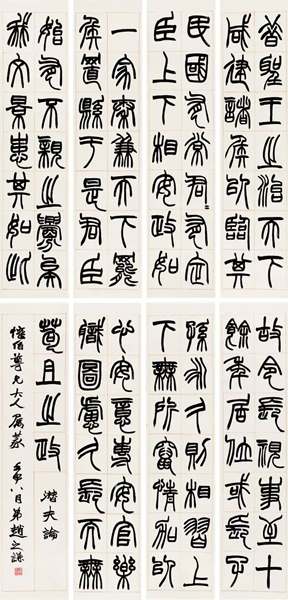 昔聖王之治天下
咸建諸侯以臨其
民國有常君=有定
臣上下相安政如
一家秦兼天下罷
侯置縣于是君臣
始有不親之釁矣
我文景患其如此
故令長視事至十
餘年居位或長子
孫永久則相習上
下無所竄情加以
心安意專安官樂
職圖慮久長而無
苟且之政
潛夫論
伯尊兄大人屬篆 八月弟趙之謙